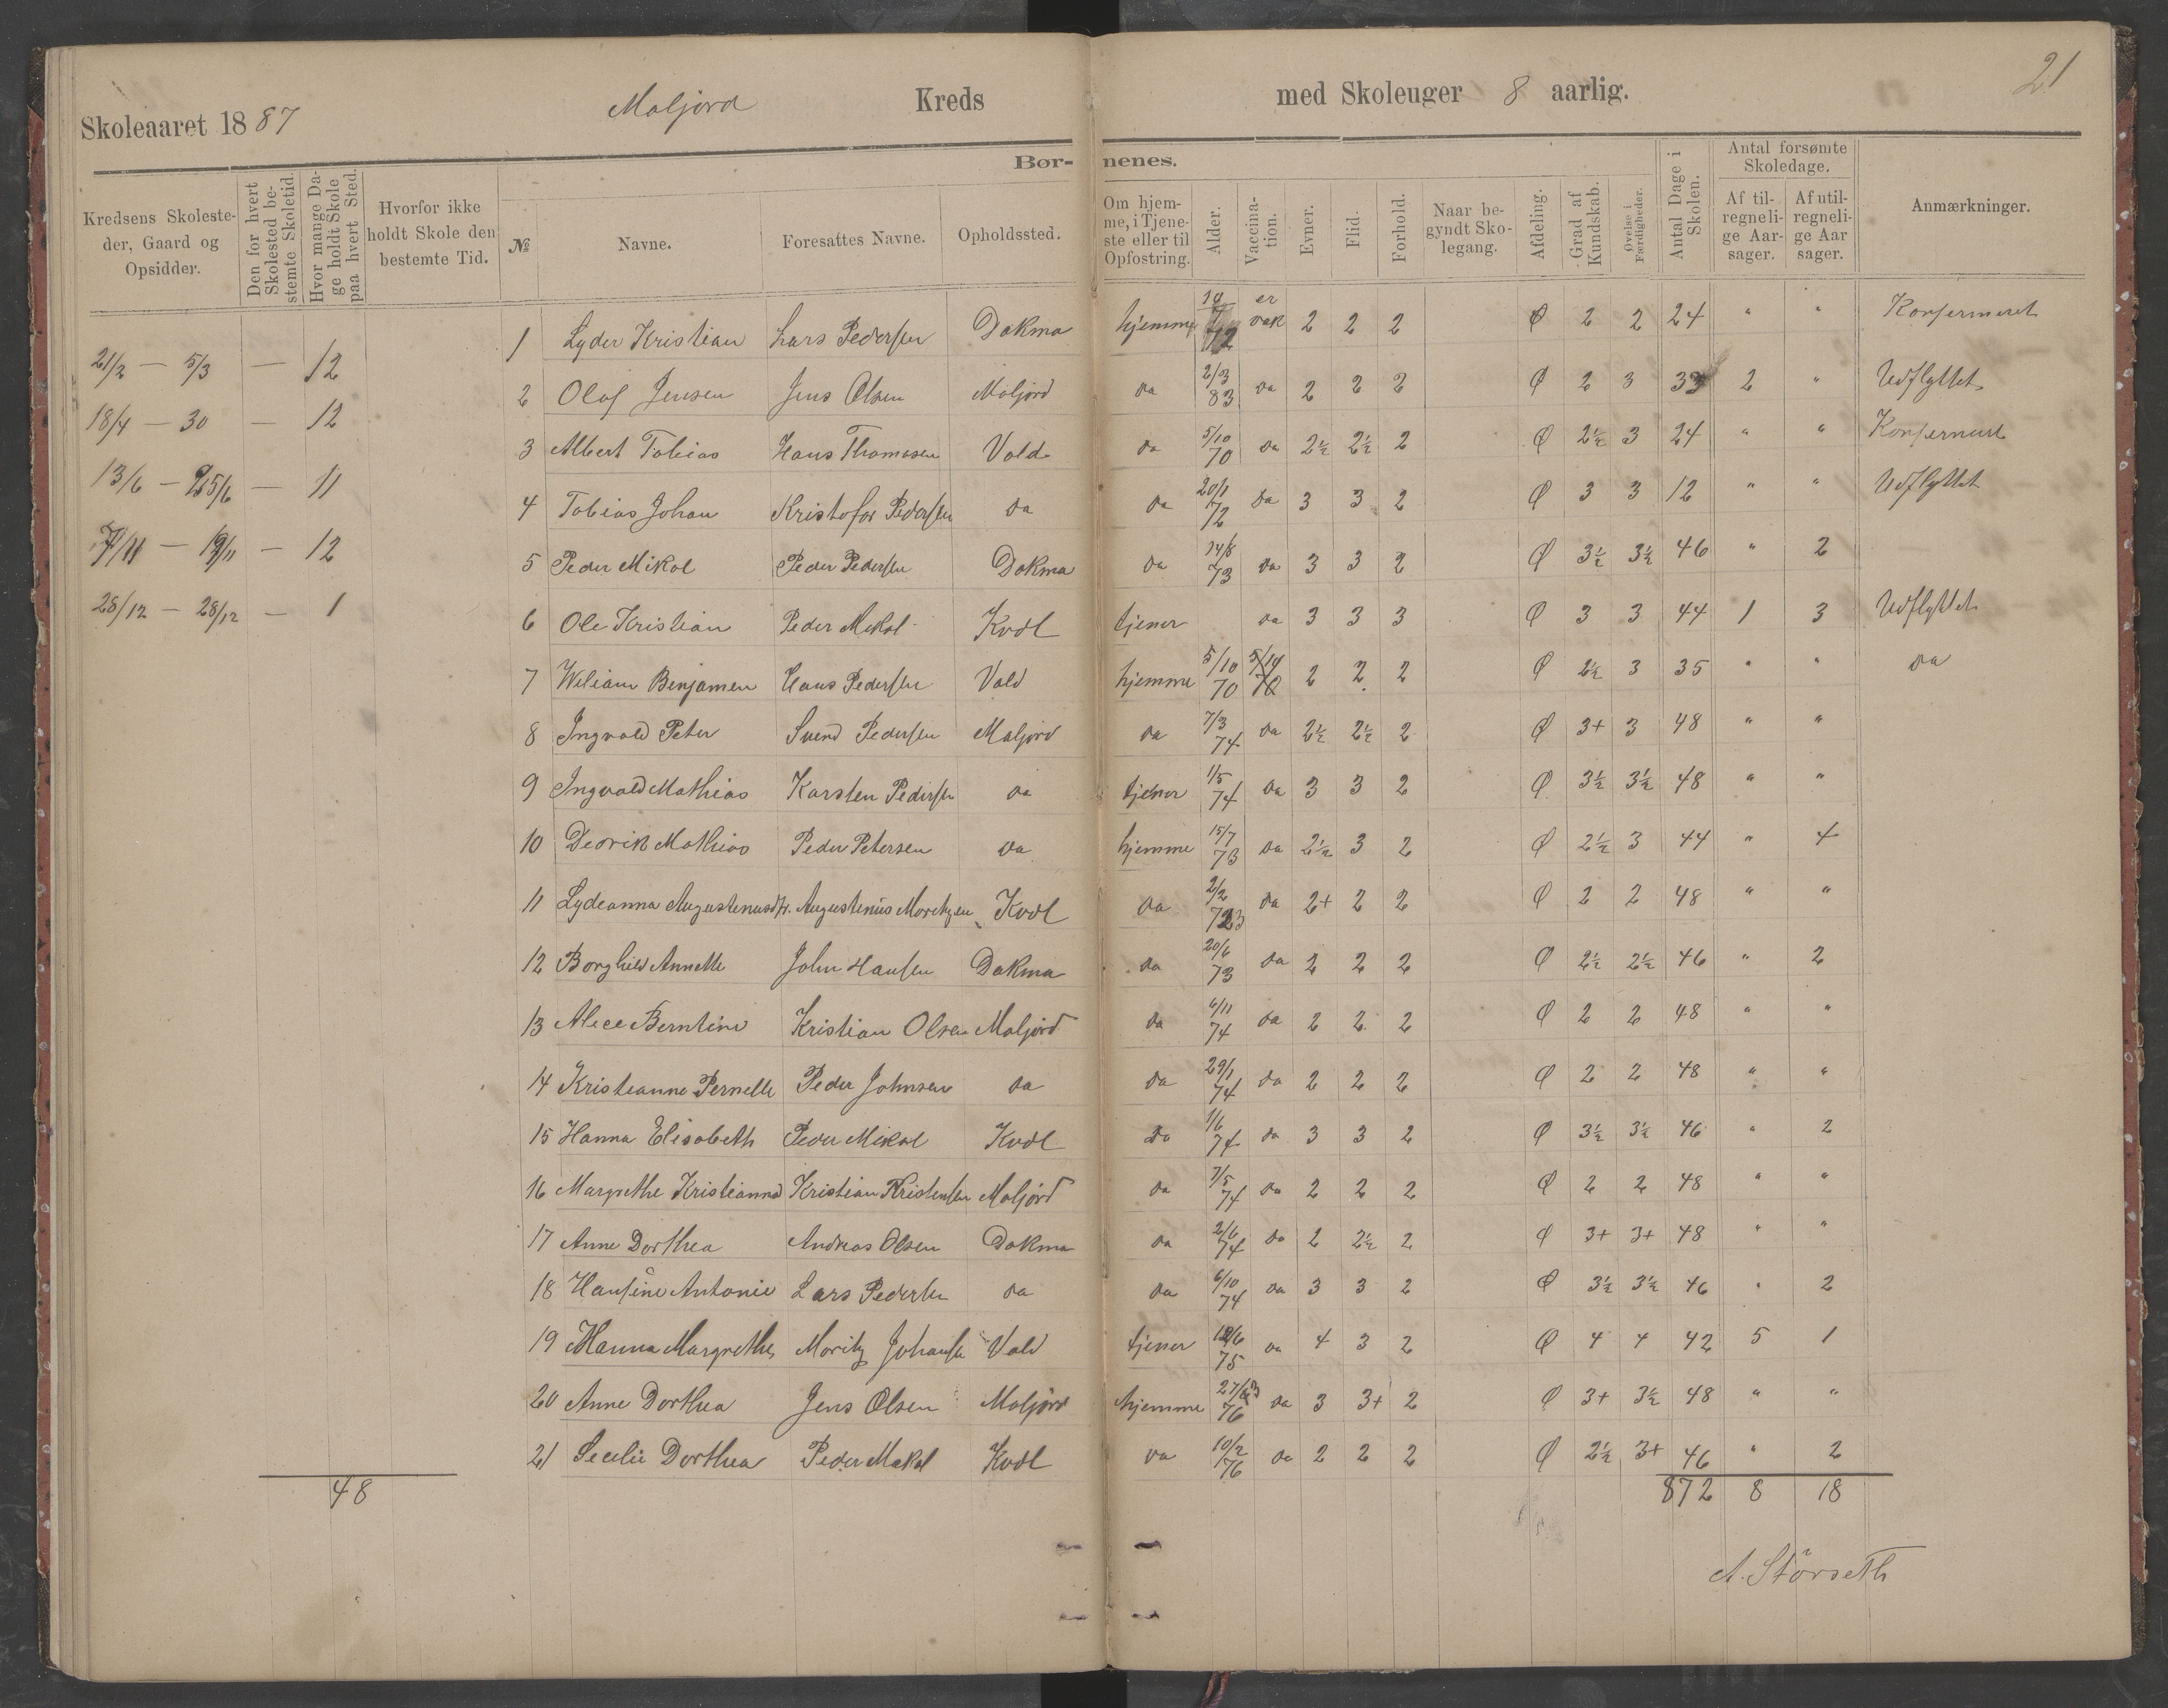 21
Skoleaaret 1887 Maljord Kreds med Skoleuger 8 aarlig.
Børnenes.
Kredsens Skolesteder, Gaard og Opsidder.
Den for hvert Skolested bestemte Skoletid.
Hvor mange Dage holdt Skole paa hvert Sted.
Hvorfor ikke holdt Skole den bestemte Tid.
№
Navne.
Foresattes Navne.
Opholdssted.
Om hjemme, i Tjeneste eller til Opfostring.
Alder.
Vaccination.
Evner.
Flid.
Forhold.
Naar begyndt Skolegang.
Afdeling.
Grad af Kundskab.
Øvelse i Færdigheder.
Antal Dage i Skolen.
Antal forsømte Skoledage.
Af tilregnelige Aarsager.
Af utilregnelige Aarsager.
Anmærkninger.
21/2 — 5/3 — 12
18/4 — 30 — 12
13/6 — 25/6 — 11
7/11 — 19/11 — 12
28/12 — 28/12 — 1
48
1 Lyder Kristian Lars Pedersen Dakma hjemme 72 er vak 2 2 2 Ø 2 2 24 " " Konfermeret
2 Olaf Jensen Jens Olsen Maljord da 2/3 83 da 2 2 2 Ø 2 3 33 2 " Udflyttet
3 Albert Tobias Hans Thomasen Vold da 5/10 70 da 2½ 2½ 2 Ø 2½ 3 24 " " Konfermeret
4 Tobias Johan Kristofer Pedersen da da 20/1 72 da 3 3 2 Ø 3 3 12 " " Udflyttet
5 Peder Mikal Peder Pedersen Dakma da 14/8 73 da 3 3 2 Ø 3½ 3½ 46 " 2
6 Ole Kristian Peder Mikal Kvdl tjener da 3 3 3 Ø 3 3 44 1 3 Udflyttet
7 Wiliam Benjamen Hans Pedersen Vald hjemme 5/10 70 5/10 70 2 2 2 Ø 2½ 3 35 " " da
8 Ingvald Peter Svend Pedersen Maljord da 7/3 74 da 2½ 2½ 2 Ø 3+ 3 48 " "
9 Ingvald Mathias Karsten Pedersen da tjener 1/5 74 da 3 3 2 Ø 3½ 3½ 48 " "
10 Dedrik Mathias Peder Petersen da hjemme 15/7 73 da 2½ 3 2 Ø 2½ 3 44 " 4
11 Lydeanna Augustenusdtr. Augustenus Moritzen Kvdl da 2/2 73 da 2+ 2 2 Ø 2 2 48 " "
12 Borghild Annette John Hansen Dakma da 20/6 73 da 2 2 2 Ø 2½ 2½ 46 " 2
13 Alice Berntine Kristian Olsen Maljord da 6/11 74 da 2 2 2 Ø 2 2 48 " "
14 Kristeanne Pernelle Peder Johnsen da da 29/1 74 da 2 2 2 Ø 2 2 48 " "
15 Hanna Elisabeth Peder Mikal Kvdl da 1/6 74 da 3 3 2 Ø 3½ 3½ 46 " 2
16 Margrethe Kristianna Kristian Kristensen Maljord da 7/5 74 da 2 2 2 Ø 2 2 48 " "
17 Anne Dorthea Andreas Olsen Dakma da 2/6 74 da 2 2½ 2 Ø 3+ 3+ 48 " "
18 Hansine Antonie Lars Pedersen da da 6/10 74 da 3 3 2 Ø 3½ 3½ 46 " 2
19 Hanna Margrethe Moritz Johansen Vald tjener 12/6 75 da 4 3 2 Ø 4 4 42 5 1
20 Anne Dorthea Jens Olsen Maljord hjemme 27/3 76 da 3 3+ 2 Ø 3+ 3½ 48 " "
21 Secilie Dorthea Peder Mekal Kvdl da 10/2 76 da 2 2 2 Ø 2½ 3+ 46 " 2
872 8 18
A. Störseth